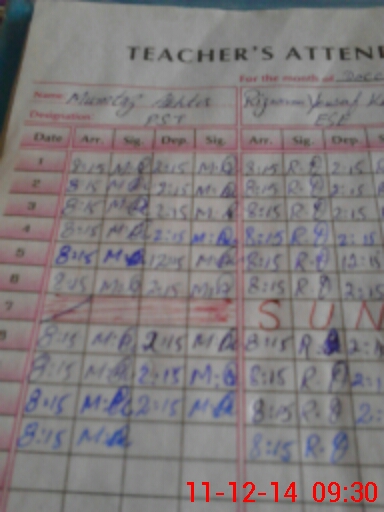 TEACHER'S ATTEN
For the month of Dec
Name: Mumtaz Akhtar
Designation: PST ESE
Date Arr. Sig. Dep. Sig. Arr. Sig. Dep.
1 8:15 M.A 2:15 M.A 8:15 R.J 2:15
2 8:15 M.A 2:15 M.A 8:15 R.J 2:15
3 8:15 M.A 2:15 M.A 8:15 R.J 2:15
4 8:15 M.A 2:15 M.A 8:15 R.J 2:15
5 8:15 M.A 12:15 M.A 8:15 R.J 12:15
6 8:15 M.A 2:15 M.A 8:15 R.J 2:15
7 SUN
8 8:15 M.A 2:15 M.A 8:15 R.J 2:1
8:15 M.A 2:15 M.A 8:15 R.J 2:1
8:15 M.A 2:15 M.A 8:15 R.J 2:
8:15 M.A 8:15 R.J
11-12-14 09:30